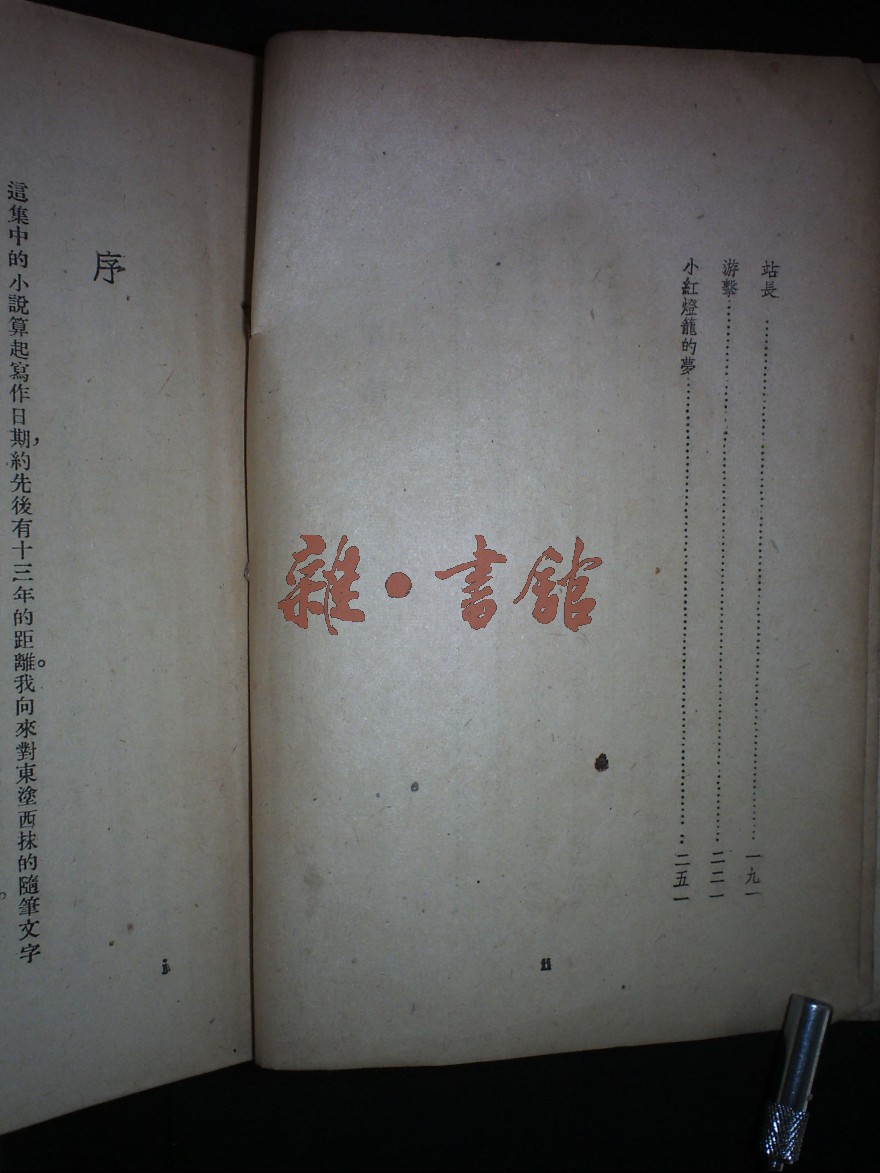 站長……一九一
游擊……二二一
小紅燈籠的夢……二五一
ii
序
這集中的小說算起寫作日期，約先後有十三年的距離。我向來對東塗西抹的隨筆文字
i
雜·書館